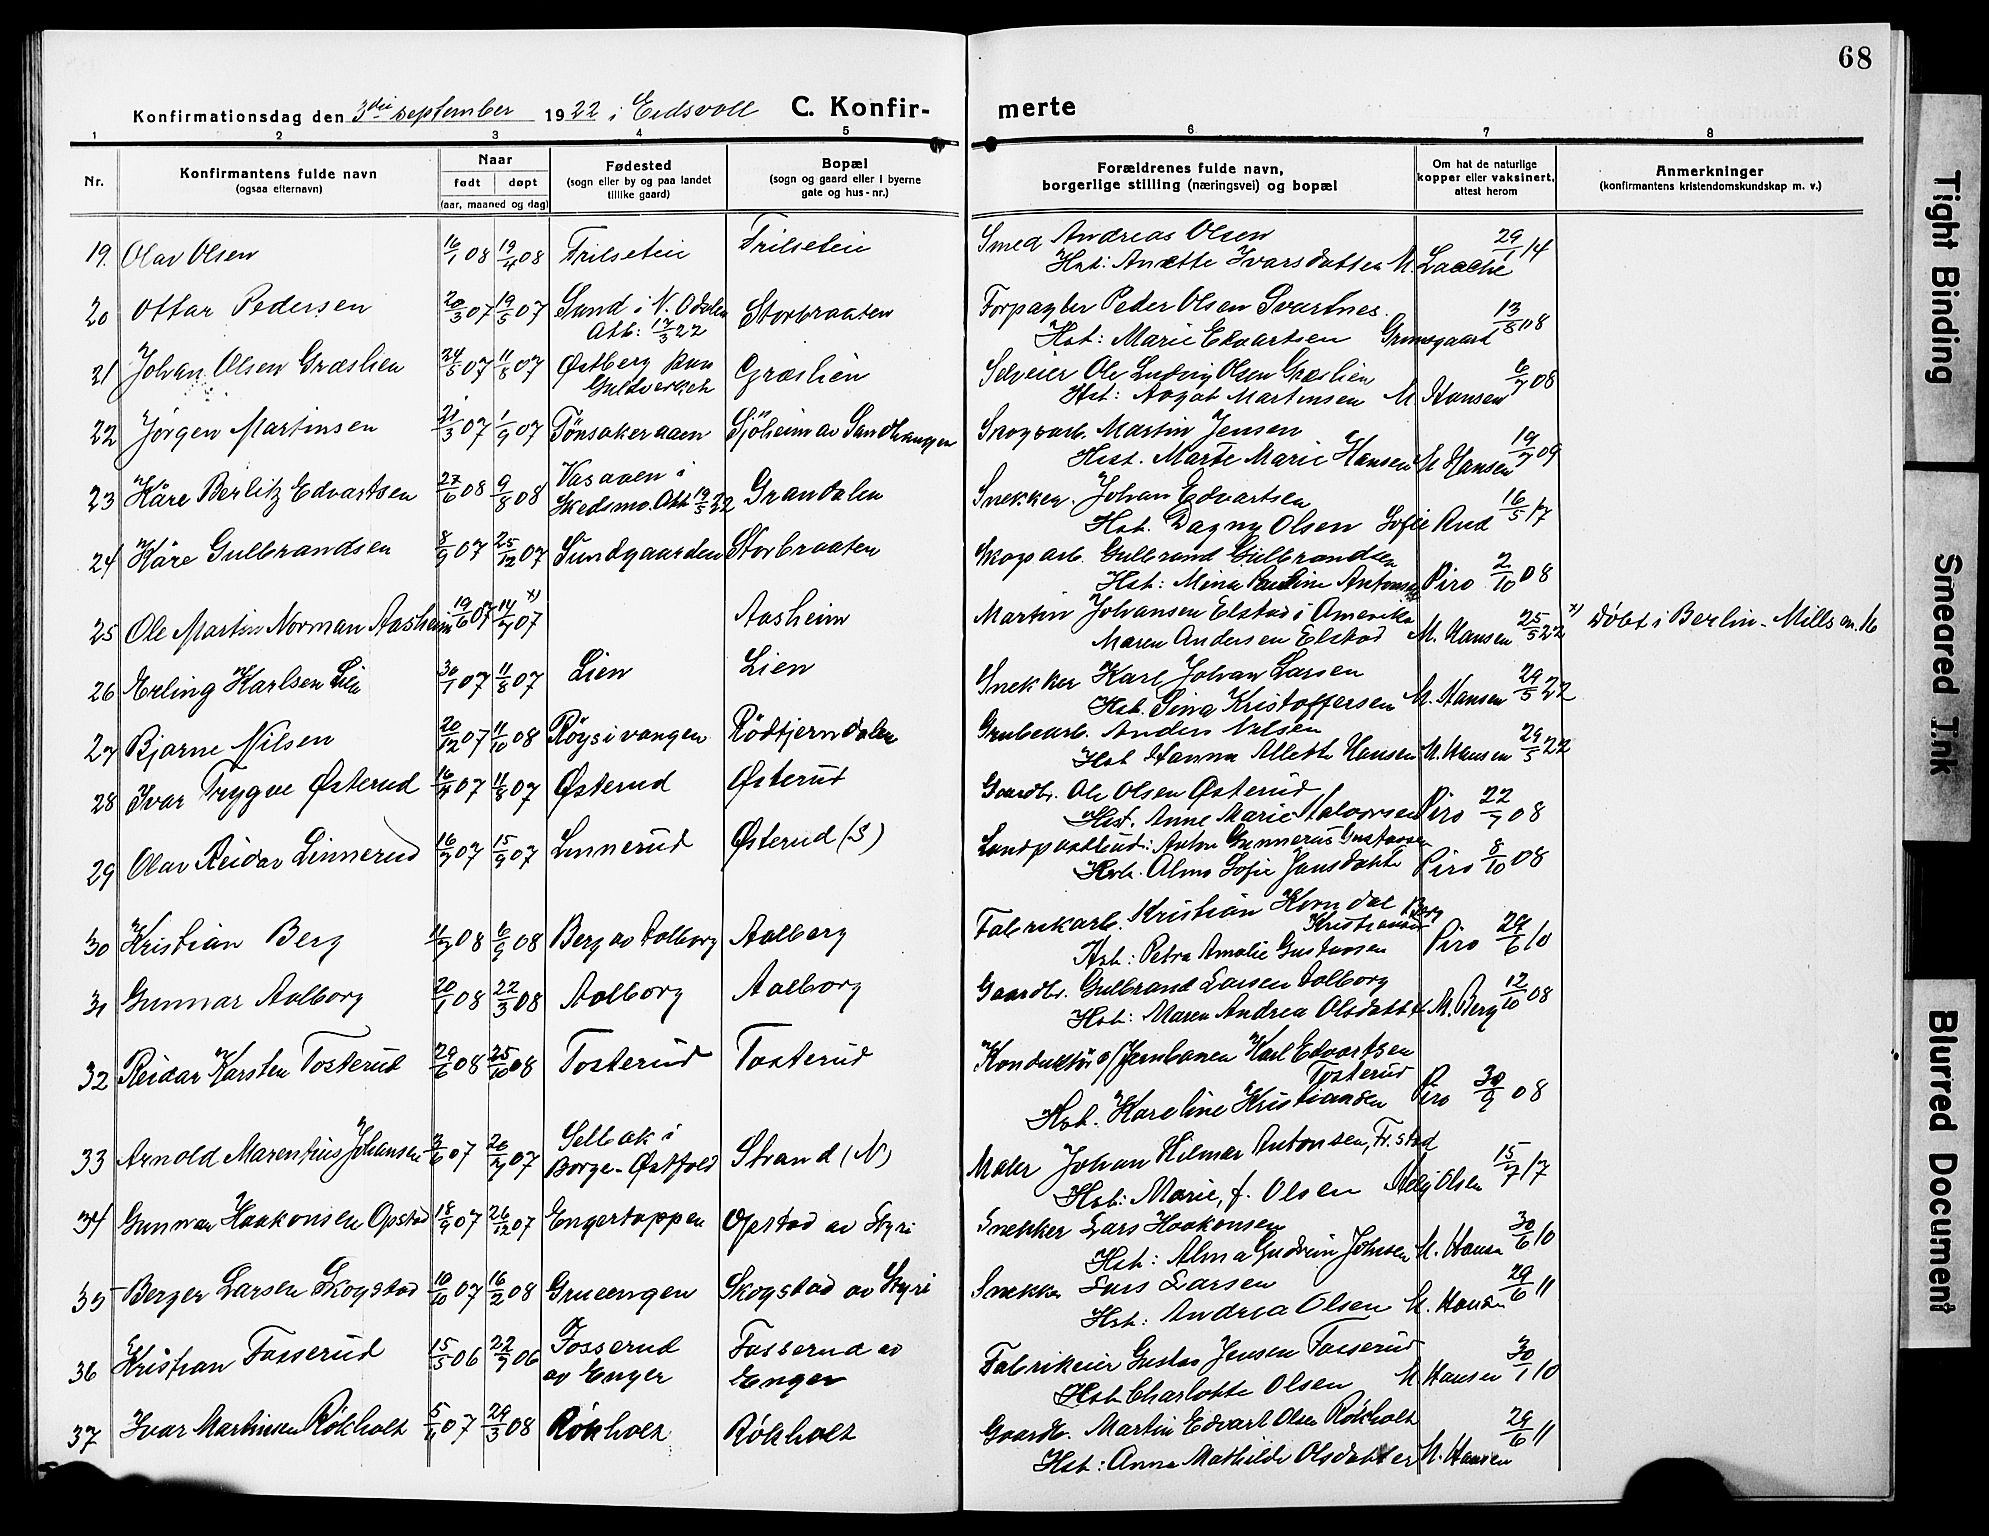 68
Konfirmationsdag den 3die september 1922 i Eidsvoll C. Konfir- merte
1 2 3 4 5 6 7 8
Nr. Konfirmantens fulde navn (ogsaa efternavn) Naar født døpt (aar, maaned og dag) Fødested (sogn eller by og paa landet tillike gaard) Bopæl (sogn og gaard eller i byerne gate og hus-nr.) Forældrenes fulde navn, borgerlige stilling (næringsvei) og bopæl Om hat de naturlige kopper eller vaksinert, attest herom Anmerkninger (konfirmantens kristendomskundskap m. v.)
19. Olav Olsen 16/1 08 19/4 08 Frilseteie Frilseteie Smed Andreas Olsen 29/1 14
Hst: Anette Ivarsdatter M. Laache
20 Ottar Pedersen 20/3 07 19/5 07 Sand i N. Odalen Storbraaten Forpagter Peder Olsen Svartnes. 13/8 08
Att: 17/3 22 Hst: Marie Edvartsen Grimsgaard
21 Johan Olsen Græslien 24/5 07 11/8 07 Østberg Græslien Selveier Ole Ludvig Olsen Græslien 6/7 08
Guldverket Hst: Aagot Martinsen M Hansen
22 Jörgen Martinsen 21/3 07 1/9 07 Tönsakeraaen Sjöheim av Sandhaugen Skogsarb. Martin Jensen 19/7 09
Hust. Marte Marie Hansen M Hansen
23 Kåre Berlitz Edvartsen 27/6 08 9/8 08 Vasaaen i Grandalen Snekker. Johan Edvartsen 16/5 17
Skedsmo. Att 19/5 22 Hst. Dagny Olsen Sofie Rud
24 Kåre Gulbrandsen 8/9 07 25/12 07 Sundgaarden Storbraaten Skogsarb. Gulbrand Gulbrandsen 2/10 08
Hst: Mina Pauline Antonsen Piro
25 Ole Martin Norman Aasheim 19/6 07 14/7 07 x) Aasheim Martin Johansen Elstad i Amerika 25/5 22 x) Döbt i Berlin - Mills
Maren Andersen Elstad M. Hansen
26 Erling Karlsen Lie 30/1 07 11/8 07 Lien Lien Snekker Karl Johan Larsen 29/5 22
Hst. Sina Kristoffersen M. Hansen
27 Bjarne Nilsen 20/12 07 11/10 08 Röysivangen Rödtjerndalen Grubearb. Anders Nilsen 29/5 22
Hst Hanna Alette Hansen M. Hansen
28 Ivar Trygve Østerud 16/4 07 11/8 07 Østerud Østerud Gaardbr. Ole Olsen Østerud 22/7 08
Hust. Anne Marie Halvorsen Piro
29 Olav Reidar Linnerud 16/7 07 15/9 07 Linnerud Østerud (S) Landpostbud: Anton Gunnerius Gustavsen 8/10 08
Hst. Alma Sofie Jansdatte Piro
30 Kristian Berg 11/7 08 6/9 08 Berg av Aalborg Aalborg Fabrikarb. Kristian Korndal Berg 29/6 10
Kristiansen
Hst: Petra Amalie Gustavsen Piro
31 Gunnar Aalborg 20/1 08 22/3 08 Aalborg Aalborg Gaardbr. Gulbrand Larsen Aalborg 12/10 08
Hst: Maren Andrea Olsdatter M. Berg
32 Reidar Karsten Tosterud 29/6 08 25/10 08 Tosterud Tosterud Konduktör v/Jernbanen Karl Edvartsen
Tosterud
Hst. Kareline Kristiansen Piro 30/9 08
33 Arnold Marentius Johansen 3/6 07 26/7 07 Selbak i Strand (N) Maler Johan Hilmar Antonsen, Fr.stad 15/7 17
Borge - Østfold Hst: Marie, f. Olsen Olsen
34 Gunnar Haakonsen Opstad 18/9 07 26/12 07 Engertoppen Opstad av Styri Snekker Lars Haakonsen 30/6 10
Hst: Alma Gudrun Johnsen M. Hansen
35 Berger Larsen Skogstad 10/10 07 16/2 08 Grueengen Skogstad av Styri Snekker Lars Larsen 29/6 11
Hst: Andrea Olsen M. Hansen
36 Kristian Fosserud 15/5 06 22/7 06 Fosserud Fosserud av Fabrikeier Gustav Jensen Fosserud 30/1 10
av Enger Enger Hst Charlotte Olsen M. Hansen
37 Ivar Martinsen Rökholt 5/11 07 29/3 08 Rökholt Rökholt Gaardb. Martin Edvart Olsen Rökholt 29/6 11
Hst: Anna Mathilde Olsdatter M. Hansen
Tight Binding
Smeared Ink
Blurred Document